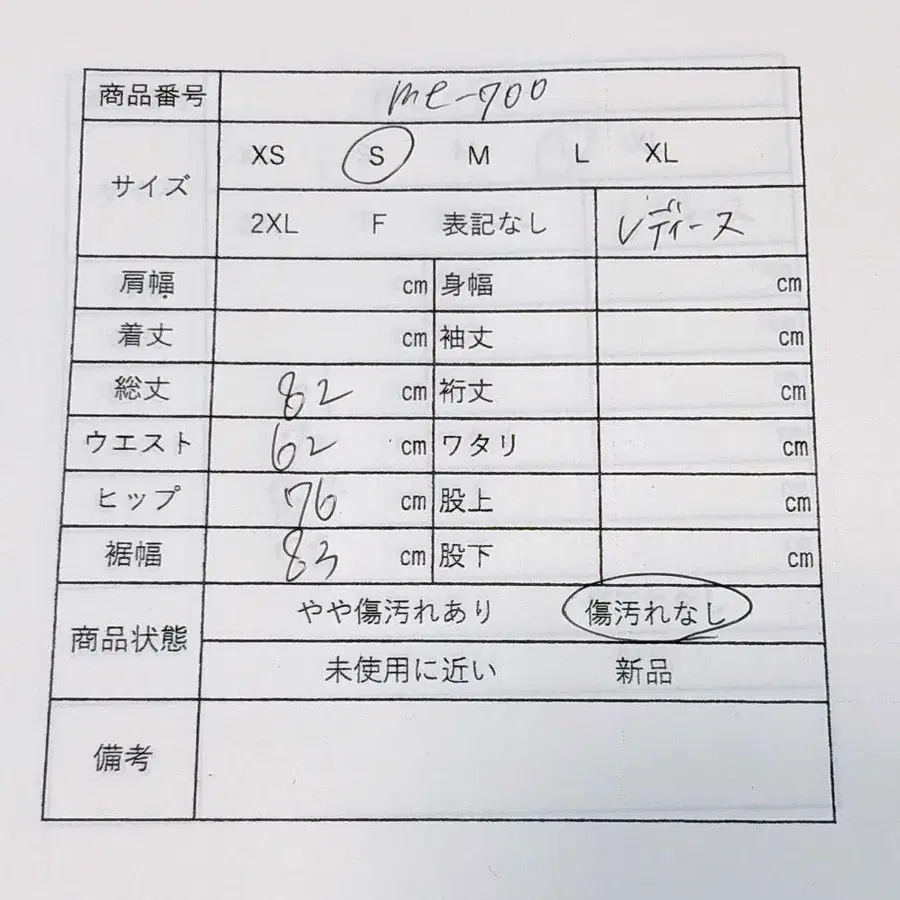 商品番号 me-700
サイズ XS S M L XL
2XL F 表記なし レディース
肩幅 cm 身幅 cm
着丈 cm 袖丈 cm
総丈 82 cm 裄丈 cm
ウエスト 62 cm ワタリ cm
ヒップ 76 cm 股上 cm
裾幅 83 cm 股下 cm
商品状態 やや傷汚れあり 傷汚れなし
未使用に近い 新品
備考